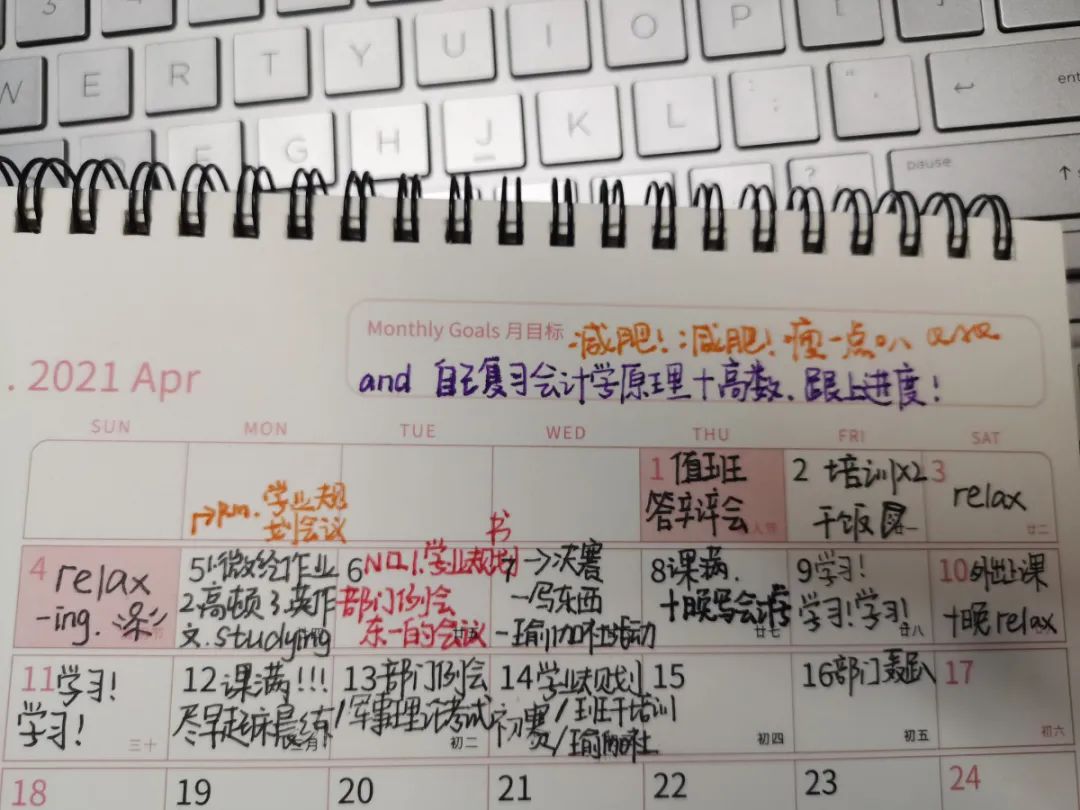 W E R T Y U I O P
G H J K L
enter
pause
?
Monthly Goals 月目标 减肥！减肥！瘦一点
and 自己复习会计学原理+高数.跟上进度！
2021 Apr
SUN MON TUE WED THU FRI SAT
1 值班
答辛辞会
2 培训×2
干饭
3 relax
廿二
pm. 学业规
划会议
4 relax
-ing.
5 1.微经作业
2.高顿 3.英作
文. studying
6 NO.1.学业规划书
部门例会
东一的会议
7 →决赛
-写东西
-瑜伽社活动
8 课满.
+晚写会计学
廿七
9 学习！
学习！学习！
廿八
10 外出上课
+晚 relax
11 学习！
学习！
三十
12 课满!!!
尽早起床晨练
13 部门例会
/军事理论考试
初二
14 学业规划
初赛/班干培训
/瑜伽社
15
初四
16 部门轰趴
初五
17
初六
18 19 20 21 22 23 24